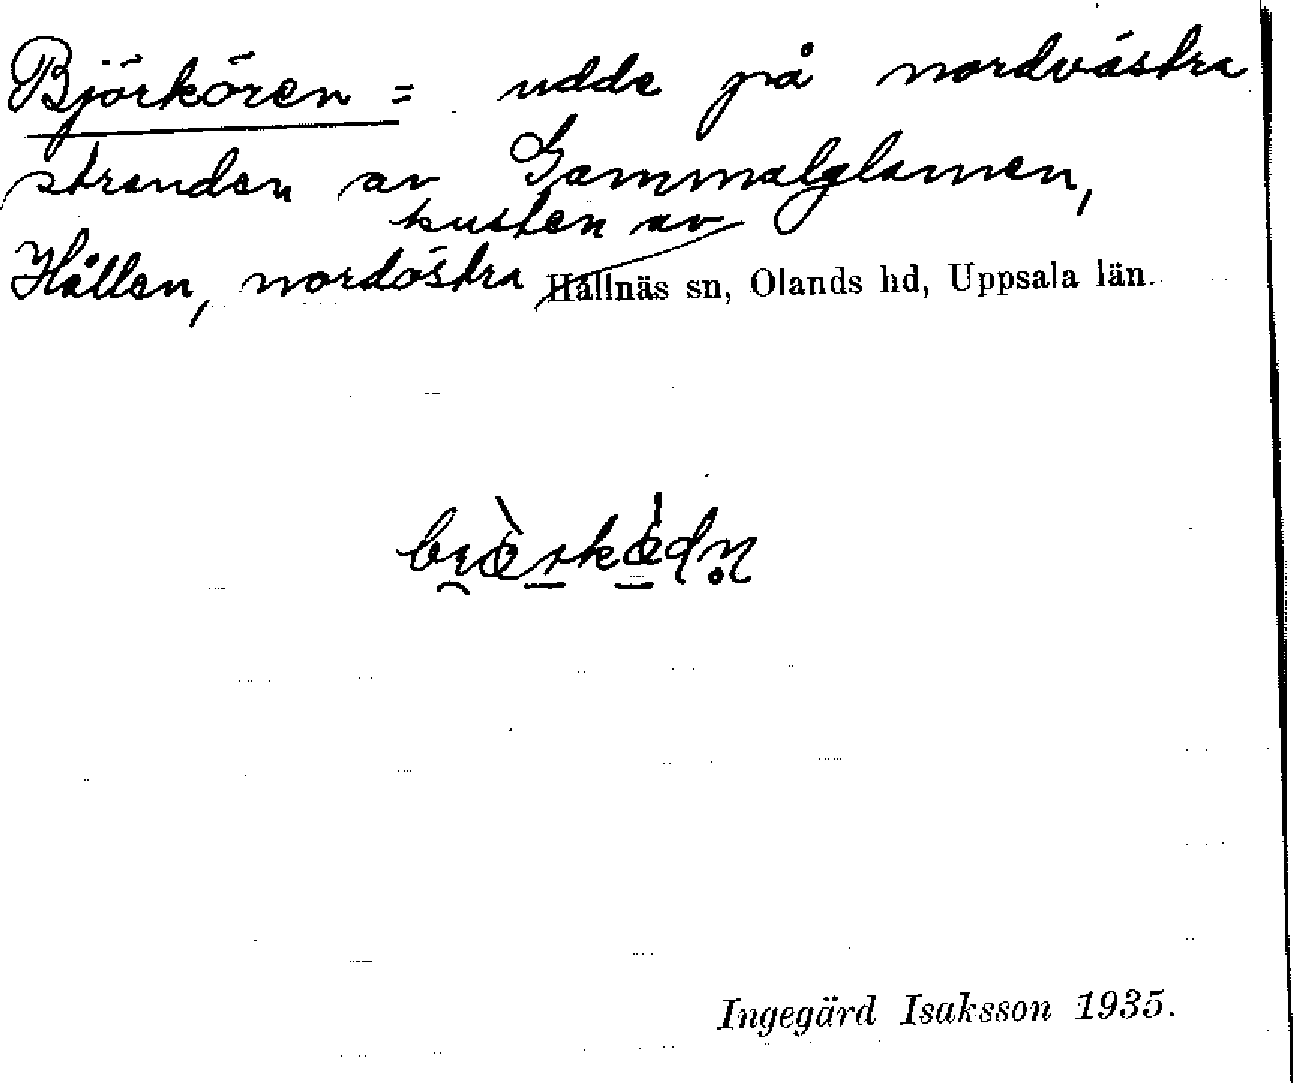 Björkören = udde på nordvästra
stranden av Gammalglamen,
kusten av
Hållen, nordöstra Hållnäs sn, Olands hd, Uppsala län.
Ingegärd Isaksson 1935.